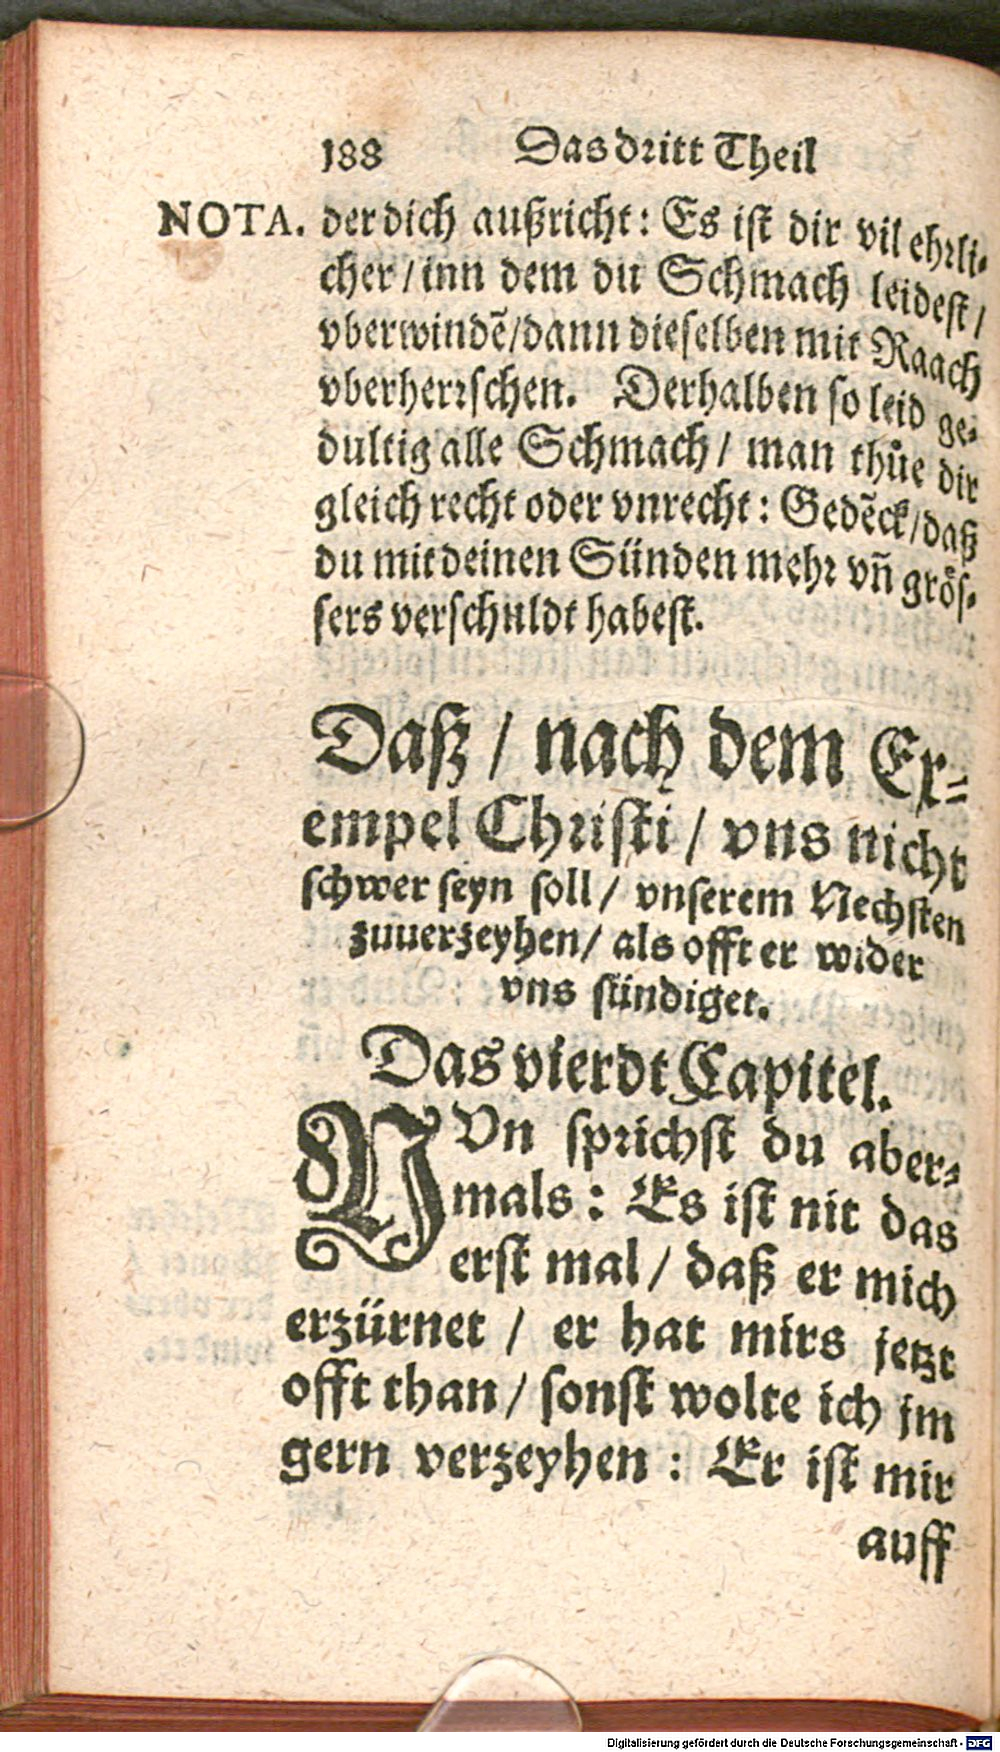 188 Das dritt Theil
NOTA. der dich außricht: Es ist dir vil ehrli-
cher / inn dem du Schmach leidest /
vberwindẽ / dann dieselben mit Raach
vberherrschen. Derhalben so leid ge-
dultig alle Schmach / man thůe dir
gleich recht oder vnrecht: Gedẽck / daß
du mit deinen Sünden mehr vñ grös-
sers verschuldt habest.
Daß / nach dem Ex-
empel Christi / vns nicht
schwer seyn soll / vnserem Nechsten
zuuerzeyhen / als offt er wider
vns sündiget.
Das vierdt Capitel.
NVn sprichst du aber-
mals: Es ist nit das
erst mal / daß er mich
erzürnet / er hat mirs jetzt
offt than / sonst wolte ich jm
gern verzeyhen: Er ist mir
auff
Digitalisierung gefördert durch die Deutsche Forschungsgemeinschaft - DFG